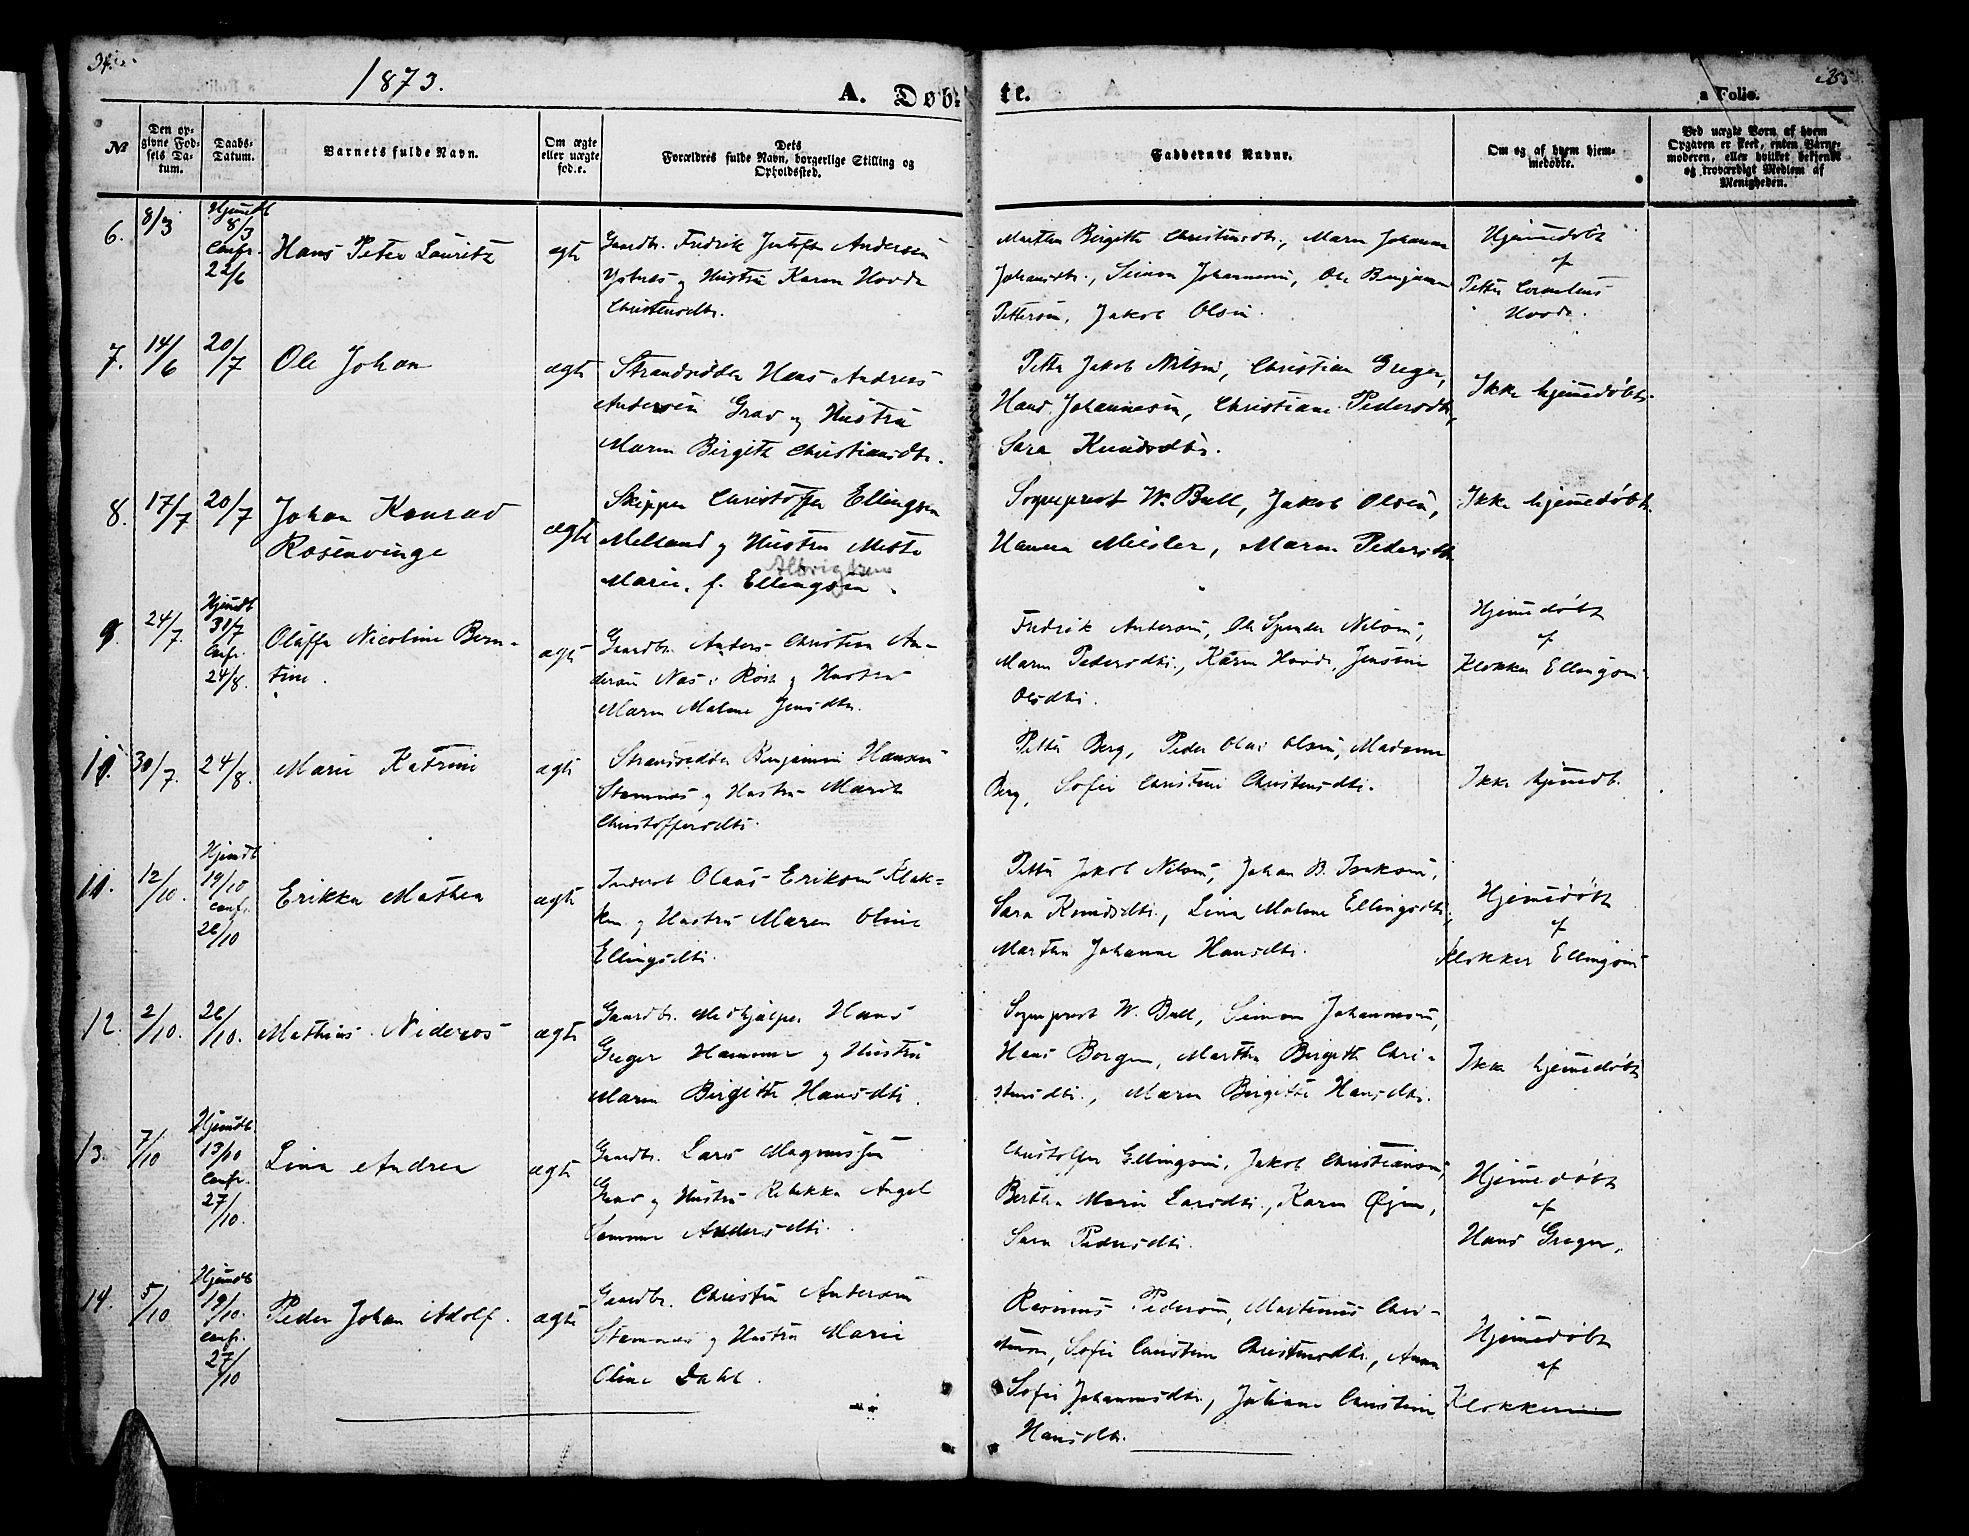 1873.
A. Døbte.
a Folio.
№
Den opgivne Fødsels Datum.
Daabs-Datum.
Barnets fulde Navn.
Om ægte eller uægte fød.e.
Dets Forældres fulde Navn, borgerlige Stilling og Opholdssted.
Faddernes Navne.
Om og af hvem hjemmedøbte.
Ved uægte Børn af hvem Opgaven er skeet, enten Barnemoderen, eller hvilket bekjendt og troværdigt Medlem af Menigheden.
6. 8/3 Hjemdb 8/3 Confr. 22/6
Hans Peter Lauritz
ægte
Gaardbr. Fredrik Andersen
Ystnes og Hustru Karen Hovde
Christensdtr.
Martha Birgitte Christensdtr., Maren Johanna
Johansdtr., Simon Johannesen, Ole Benjamin
Pettersen, Jakob Olsen.
Hjemmedøbt
af
Petter Cornelius
Hovde.
7. 14/6 20/7
Ole Johan
ægte
Strandsidder Hans Andreas
Andersen Grav og Hustru
Maren Birgith Christiansdtr.
Petter Jakob Nilsen, Christian Greger,
Hans Johannesen, Christiane Pedersdtr,
Sara Knudsdtr.
Ikke hjemmedøbt.
8. 17/7 20/7
Johan Konrad
Rosenvinge
ægte
Skipper Christoffer Ellingsen
Melland og Hustru Mette
Albrigtsen
Marie f. Ellingsen.
Sogneprest W. Bull, Jakob Olsen,
Hanna Meisler, Maren Pedersdtr
Ikke hjemmedøbt.
9. 24/7. Hjemdb 31/7 Confr. 24/8.
Oluffa Nicoline Bern-
tine.
ægte
Gaardbr. Anders Christian An-
dersen Nes i Røst og Hustru
Maren Malene Jensdtr.
Fredrik Andersen, Ole Spender Nilsen,
Maren Pedersdtr., Karen Hovde, Jensine
Olsdtr.
Hjemmedøbt
af
Klokker Ellingsen
10. 30/7. 24/8.
Marie Katrine
ægte
Strandsidder Benjamin Hansen
Stamnes og Hustru Marith
Christoffersdtr.
Petter Berg, Peder Olai Olsen, Madame
Berg, Sofie Christine Christensdtr.
Ikke hjemmedb.
11. 12/10. Hjemdb 19/10 Confr. 26/10
Erikka Mathea
ægte
Inderst Olaus Eriksen Klak-
ken og Hustru Maren Oline
Ellingsdtr.
Petter Jakob Nilsen, Johan B. Isaksen,
Sara Knudsdtr., Lina Malene Ellingsdtr.,
Martha Johanne Hansdtr.
Hjemmedøbt
af
Klokker Ellingsen
12. 2/10. 26/10.
Mathias Nideros
ægte
Gaardbr. Medhjælper Hans
Greger Hammer og Hustru
Maren Birgitte Hansdtr.
Sogneprest W. Bull, Simon Johannesen,
Hans Borgen, Martha Birgitte Chri-
stensdtr., Maren Birgitte Hansdtr.
Ikke hjemmedøbt
13. 7/10 Hjemdb. 13/10 Confr. 27/10.
Lina Andrea
ægte
Gaardbr. Lars Magnussen
Grav og Hustru Rebekka Angel
Somme Andersdtr.
Christoffer Ellingsen, Jakob Christiansen,
Bertha Marie Larsdtr., Karen Øyen,
Sara Pedersdtr.
Hjemmedøbt
af
Hans Greger.
14. 5/10 Hjemdb 19/10. Confr. 27/10
Peder Johan Adolf.
ægte
Gaardbr. Christen Andersen
Stamnes og Hustru Marie
Oline Dahl.
Rasmus Pedersen, Martinus Chri-
stensen, Sofie Christine Christensdtr., Anna
Sofie Johannesdtr., Juliane Christine
Hansdtr.
Hjemmedøbt
af
Klokkeren